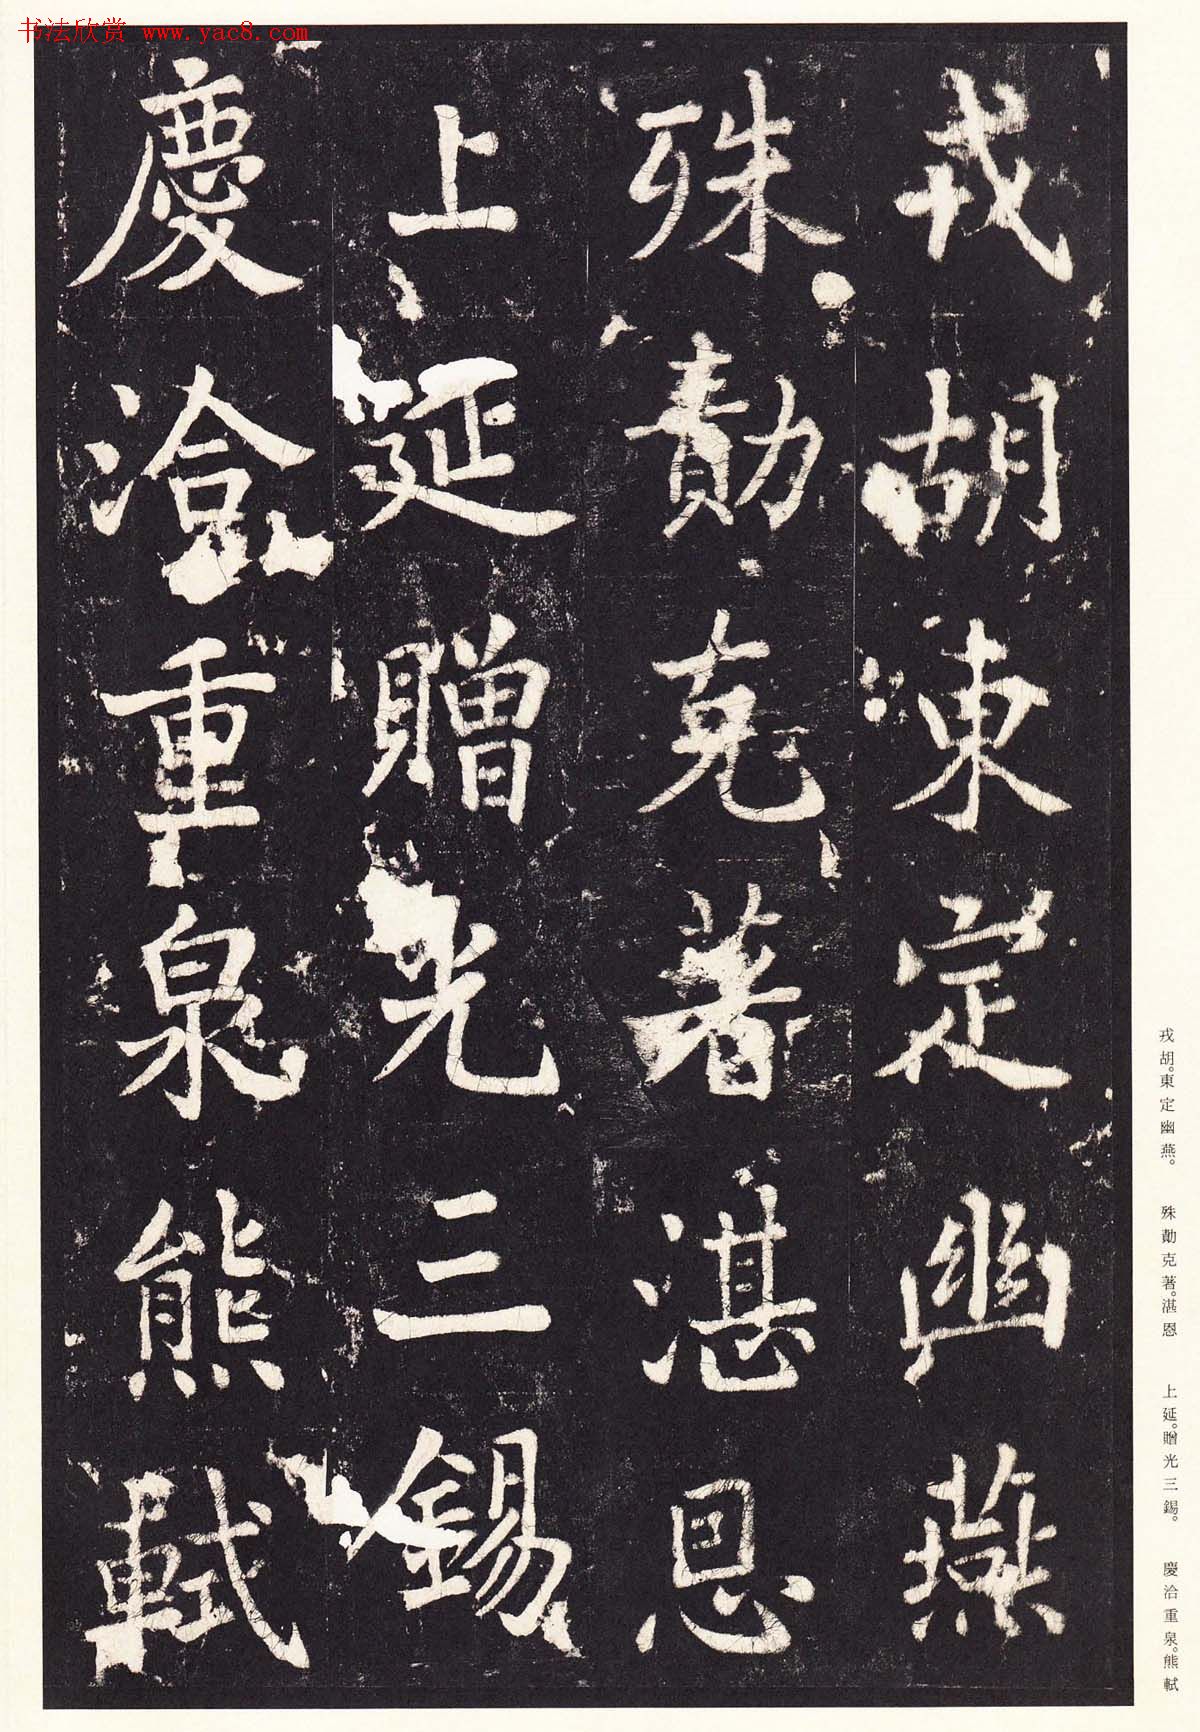 书法欣赏 www.yac8.com
戎胡東定幽燕
殊勣克著湛恩
上延贈光三錫
慶洽重泉熊軾
戎胡。東定幽燕。 殊勣克著。湛恩 上延。贈光三錫。 慶洽重泉。熊軾